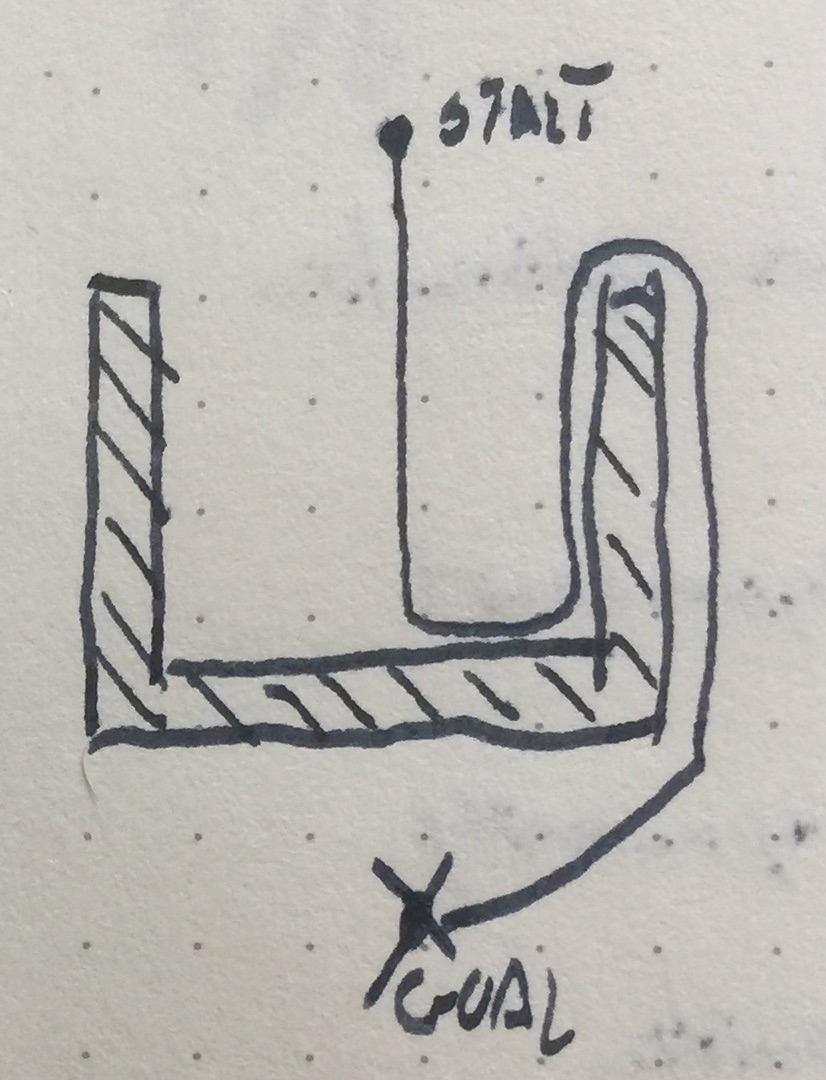 START
GOAL